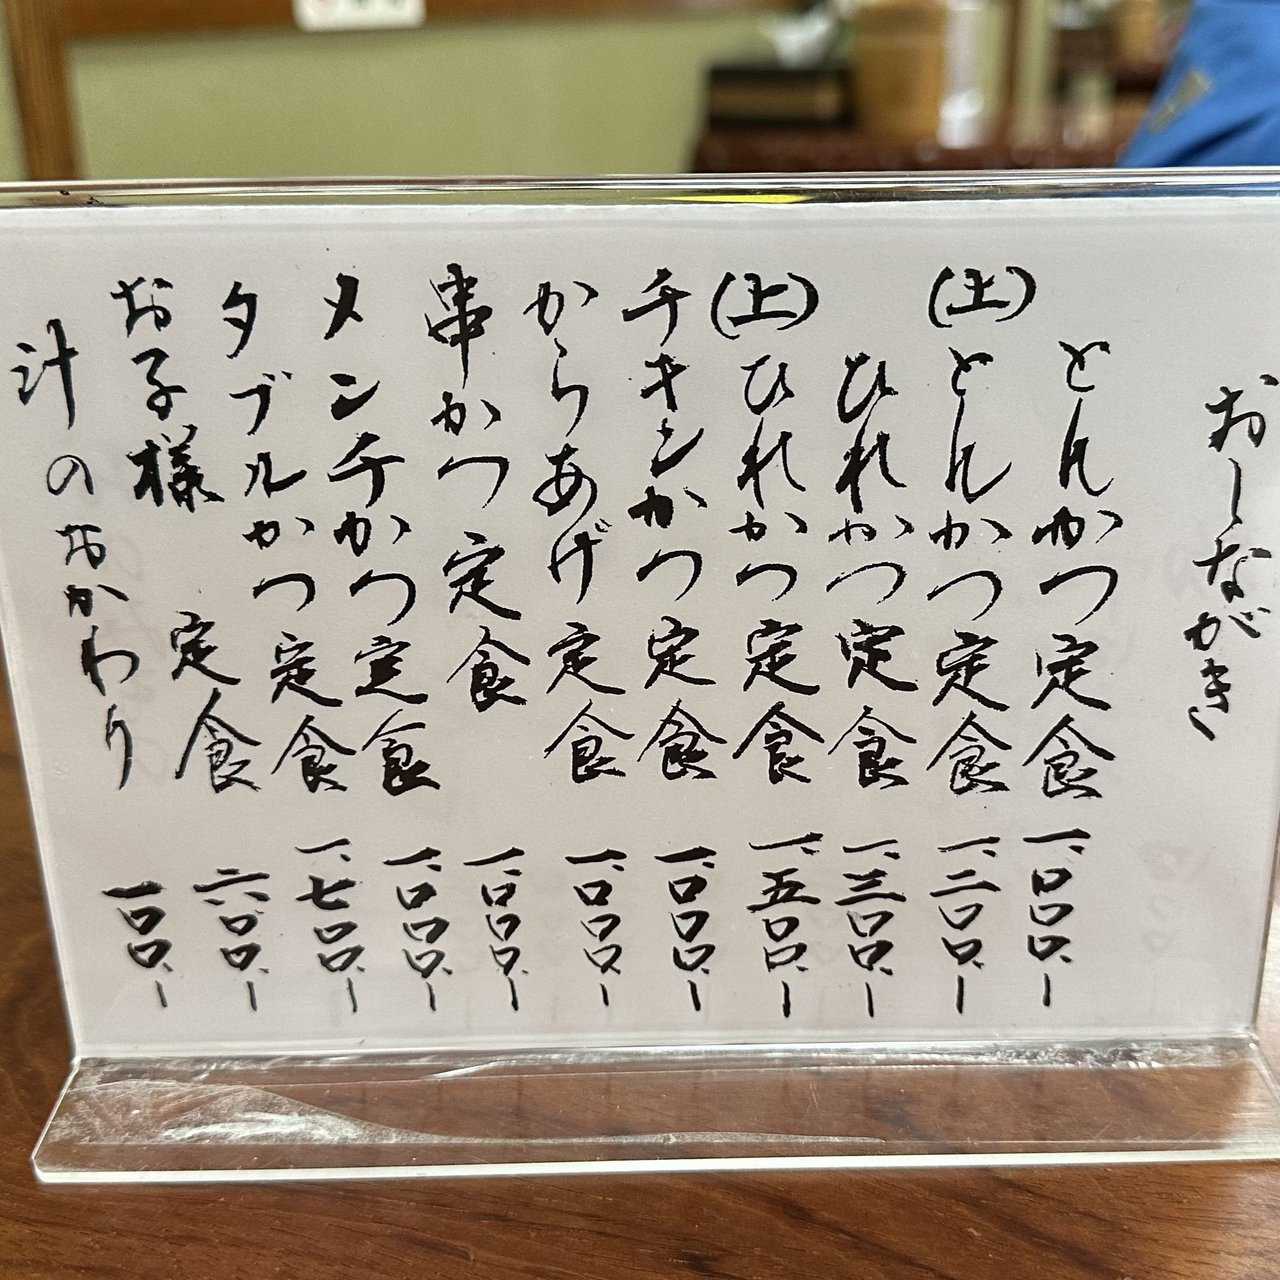 おしながき
とんかつ定食 一、〇〇〇、ー
(上)とんかつ定食 一、二〇〇、ー
ひれかつ定食 一、三〇〇、ー
(上)ひれかつ定食 一、五〇〇、ー
チキンかつ定食 一、〇〇〇、ー
からあげ定食 一、〇〇〇、ー
串かつ定食 一、〇〇〇、ー
メンチかつ定食 一、〇〇〇、ー
タブルかつ定食 一、七〇〇、ー
お子様定食 六〇〇、ー
汁のおかわり 一〇〇、ー